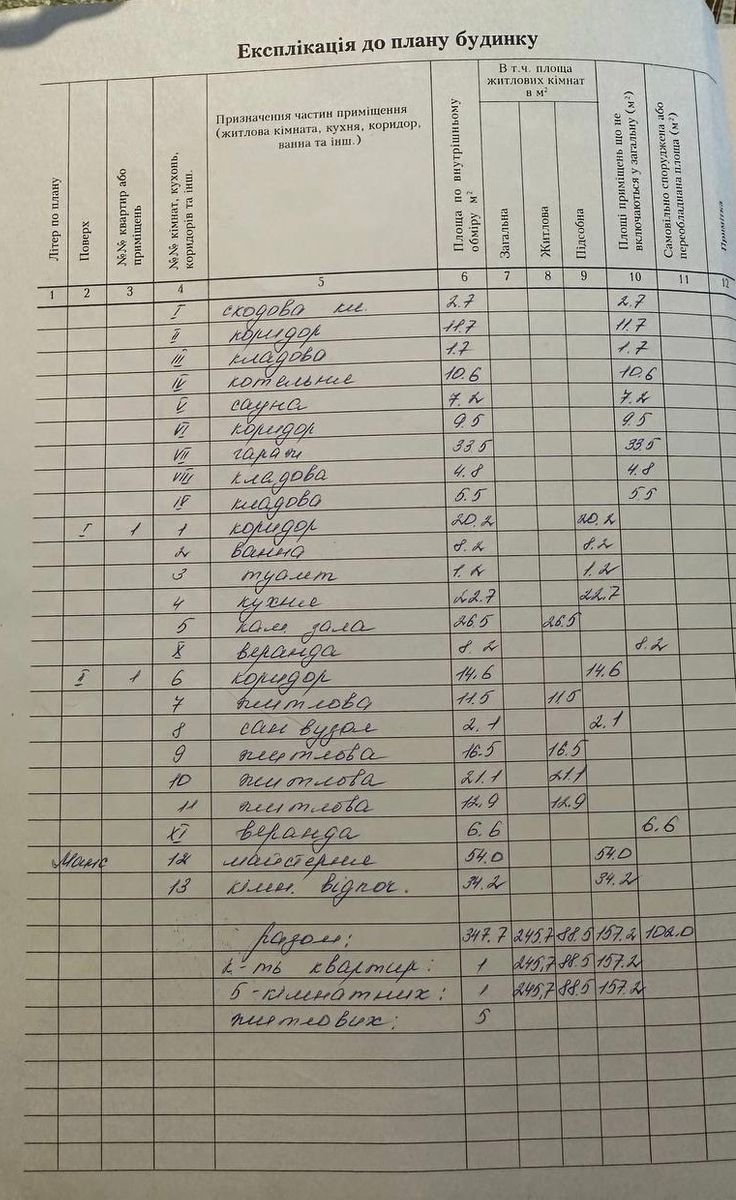 Експлікація до плану будинку
Літер по плану
Поверх
№№ квартир або приміщень
№№ кімнат, кухонь, коридорів та інш.
Призначення частин приміщення
(житлова кімната, кухня, коридор,
ванна та інш.)
Площа по внутрішньому обміру м²
В т.ч. площа
житлових кімнат
в м²
Загальна
Житлова
Підсобна
Площі приміщень що не включаються у загальну (м²)
Самовільно споруджена або переобладнана площа (м²)
Примітка
1 2 3 4 5 6 7 8 9 10 11 12
I сходова кл. 2.7 2.7
II коридор 11.7 11.7
III кладова 1.7 1.7
IV котельня 10.6 10.6
V сауна 7.2 7.2
VI коридор 9.5 9.5
VII гараж 33.5 33.5
VIII кладова 4.8 4.8
IX кладова 5.5 5.5
I 1 1 коридор 20.2 20.2
2 ванна 8.2 8.2
3 туалет 1.2 1.2
4 кухня 22.7 22.7
5 кам. зала 26.5 26.5
X веранда 8.2 8.2
II 1 6 коридор 14.6 14.6
7 житлова 11.5 11.5
8 сан вузол 2.1 2.1
9 житлова 16.5 16.5
10 житлова 21.1 21.1
11 житлова 12.9 12.9
XI веранда 6.6 6.6
Манс 12 майстерня 54.0 54.0
13 кімн. відпоч. 34.2 34.2
разом: 347.7 245.7 88.5 157.2 102.0
к-ть квартир: 1 245,7 88.5 157.2
5-кімнатних: 1 245,7 88.5 157.2
житлових: 5